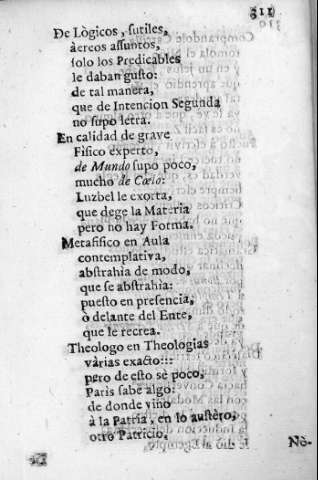 311
De Lògicos, sutiles,
àereos assuntos,
solo los Predicables
le daban gusto:
de tal manera,
que de Intencion Segunda
no supo letra.
En calidad de grave
Fisico experto,
de Mundo supo poco,
mucho de Cœlo:
Luzbel le exorta,
que dege la Materia
pero no hay Forma.
Metafisico en Aula
contemplativa,
abstrahia de modo,
que se abstrahia:
puesto en presencia,
ò delante del Ente,
que le recrea.
Theologo en Theologias
vàrias exacto:::
pero de esto sè poco,
Paris sabe algo:
de donde vino
à la Patria, en lo austèro,
otro Patricio.
Nò-